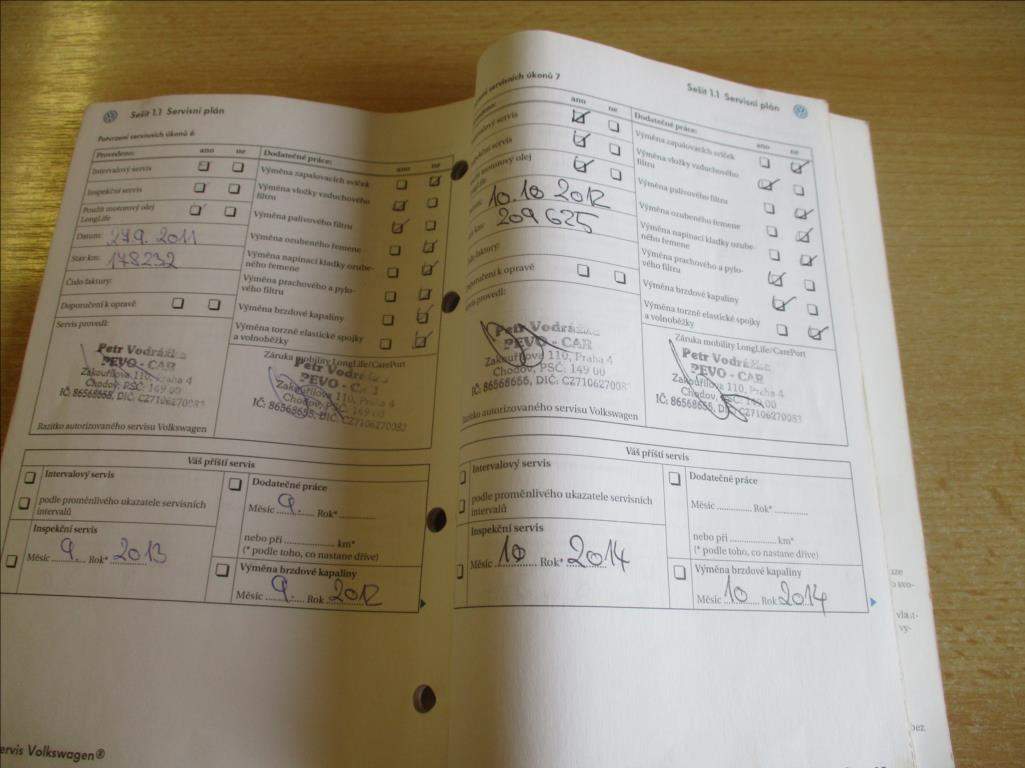 Sešit 1.1 Servisní plán
Potvrzení servisních úkonů 6
Provedeno: ano ne
Intervalový servis
Inspekční servis
Použit motorový olej
LongLife
Datum: 27.9. 2011
Stav km: 178232
Číslo faktury:
Doporučení k opravě
Servis provedl:
Petr Vodrážka
PEVO - CAR
Zakouřilova 110, Praha 4
Chodov, PSČ: 149 00
IČ: 86568655, DIČ: CZ7106270083
Razítko autorizovaného servisu Volkswagen
Dodatečné práce: ano ne
Výměna zapalovacích svíček
Výměna vložky vzduchového
filtru
Výměna palivového filtru
Výměna ozubeného řemene
Výměna napínací kladky ozube-
ného řemene
Výměna prachového a pylo-
vého filtru
Výměna brzdové kapaliny
Výměna torzně elastické spojky
a volnoběžky
Záruka mobility LongLife/CarePort
Petr Vodrážka
PEVO - CAR
Zakouřilova 110, Praha 4
Chodov, PSČ: 149 00
IČ: 86568655, DIČ: CZ7106270083
Váš příští servis
Intervalový servis
podle proměnlivého ukazatele servisních
intervalů
Inspekční servis
Měsíc 9. Rok* 2013
Dodatečné práce
Měsíc 9. Rok*
nebo při km*
(* podle toho, co nastane dříve)
Výměna brzdové kapaliny
Měsíc 9. Rok 2012
ervis Volkswagen®
Sešit 1.1 Servisní plán
servisních úkonů 7
ano ne
servis
servis
motorový olej
10.10 2012
209625
Doporučení k opravě
Petr Vodrážka
PEVO - CAR
Zakouřilova 110, Praha 4
Chodov, PSČ: 149 00
IČ: 86568655, DIČ: CZ7106270083
Razítko autorizovaného servisu Volkswagen
Dodatečné práce: ano ne
Výměna zapalovacích svíček
Výměna vložky vzduchového
filtru
Výměna palivového filtru
Výměna ozubeného řemene
Výměna napínací kladky ozube-
ného řemene
Výměna prachového a pylo-
vého filtru
Výměna brzdové kapaliny
Výměna torzně elastické spojky
a volnoběžky
Záruka mobility LongLife/CarePort
Petr Vodrážka
PEVO - CAR
Zakouřilova 110, Praha 4
Chodov, PSČ: 149 00
IČ: 86568655, DIČ: CZ7106270083
Váš příští servis
Intervalový servis
podle proměnlivého ukazatele servisních
intervalů
Inspekční servis
Měsíc 10 Rok* 2014
Dodatečné práce
Měsíc Rok*
nebo při km*
(* podle toho, co nastane dříve)
Výměna brzdové kapaliny
Měsíc 10 Rok 2014